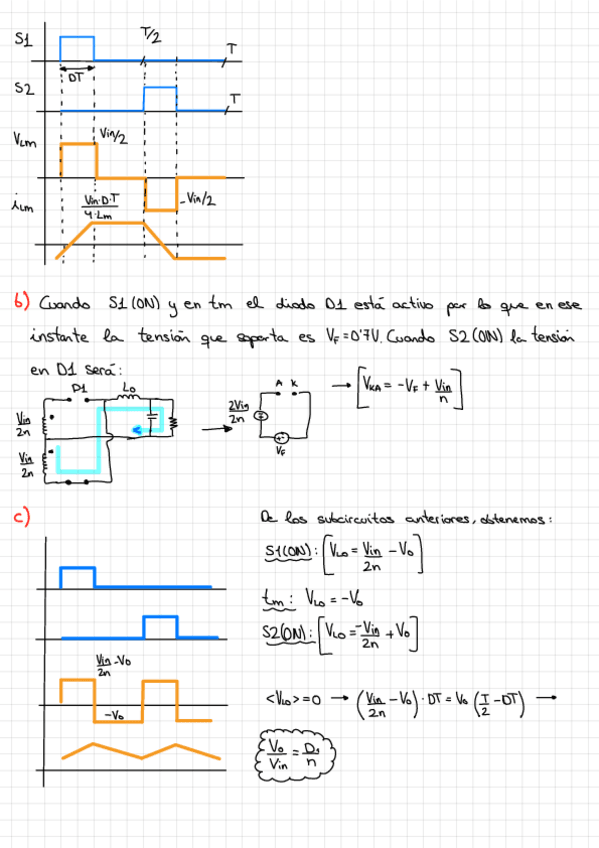 S1
T/2
T
DT
S2
T
VLm
Vin/2
iLm
Vin·D·T
4·Lm
-Vin/2
b) Cuando S1(ON) y en tm el diodo D1 está activo por lo que en ese
instante la tensión que soporta es VF=0'7V. Cuando S2(ON) la tensión
en D1 será:
D1
Lo
Vin
2n
Vin
2n
2Vin
2n
A K
VF
→ [VKA = -VF + Vin/n]
c)
De los subcircuitos anteriores, obtenemos:
S1(ON): [VLo = Vin/2n - Vo]
tm: VLo = -Vo
S2(ON): [VLo = -Vin/2n + Vo]
Vin/2n - Vo
-Vo
<VLo>=0 → (Vin/2n - Vo)·DT = Vo(T/2 - DT) →
Vo/Vin = D1/n